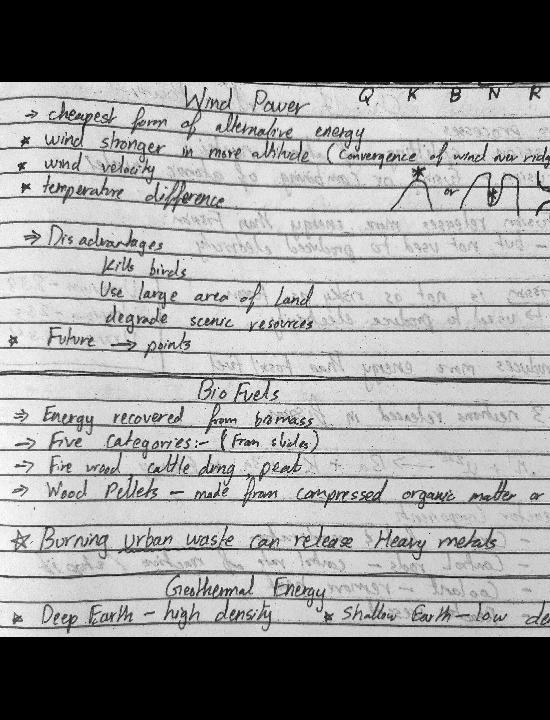 Q K B N R
Wind Power
⇒ cheapest form of alternative energy
* wind stronger in more altitude (Convergence of wind over ridg
* wind velocity
* temperature difference
or
⇒ Disadvantages
Kills birds
Use large area of Land
degrade scenic resources
* Future → points
Bio Fuels
⇒ Energy recovered from biomass
⇒ Five categories:- (From slides)
⇒ Fire wood cattle dung peat
⇒ Wood Pellets – made from compressed organic matter or
* Burning urban waste can release Heavy metals
Geothermal Energy
* Deep Earth – high density * Shallow Earth – low de